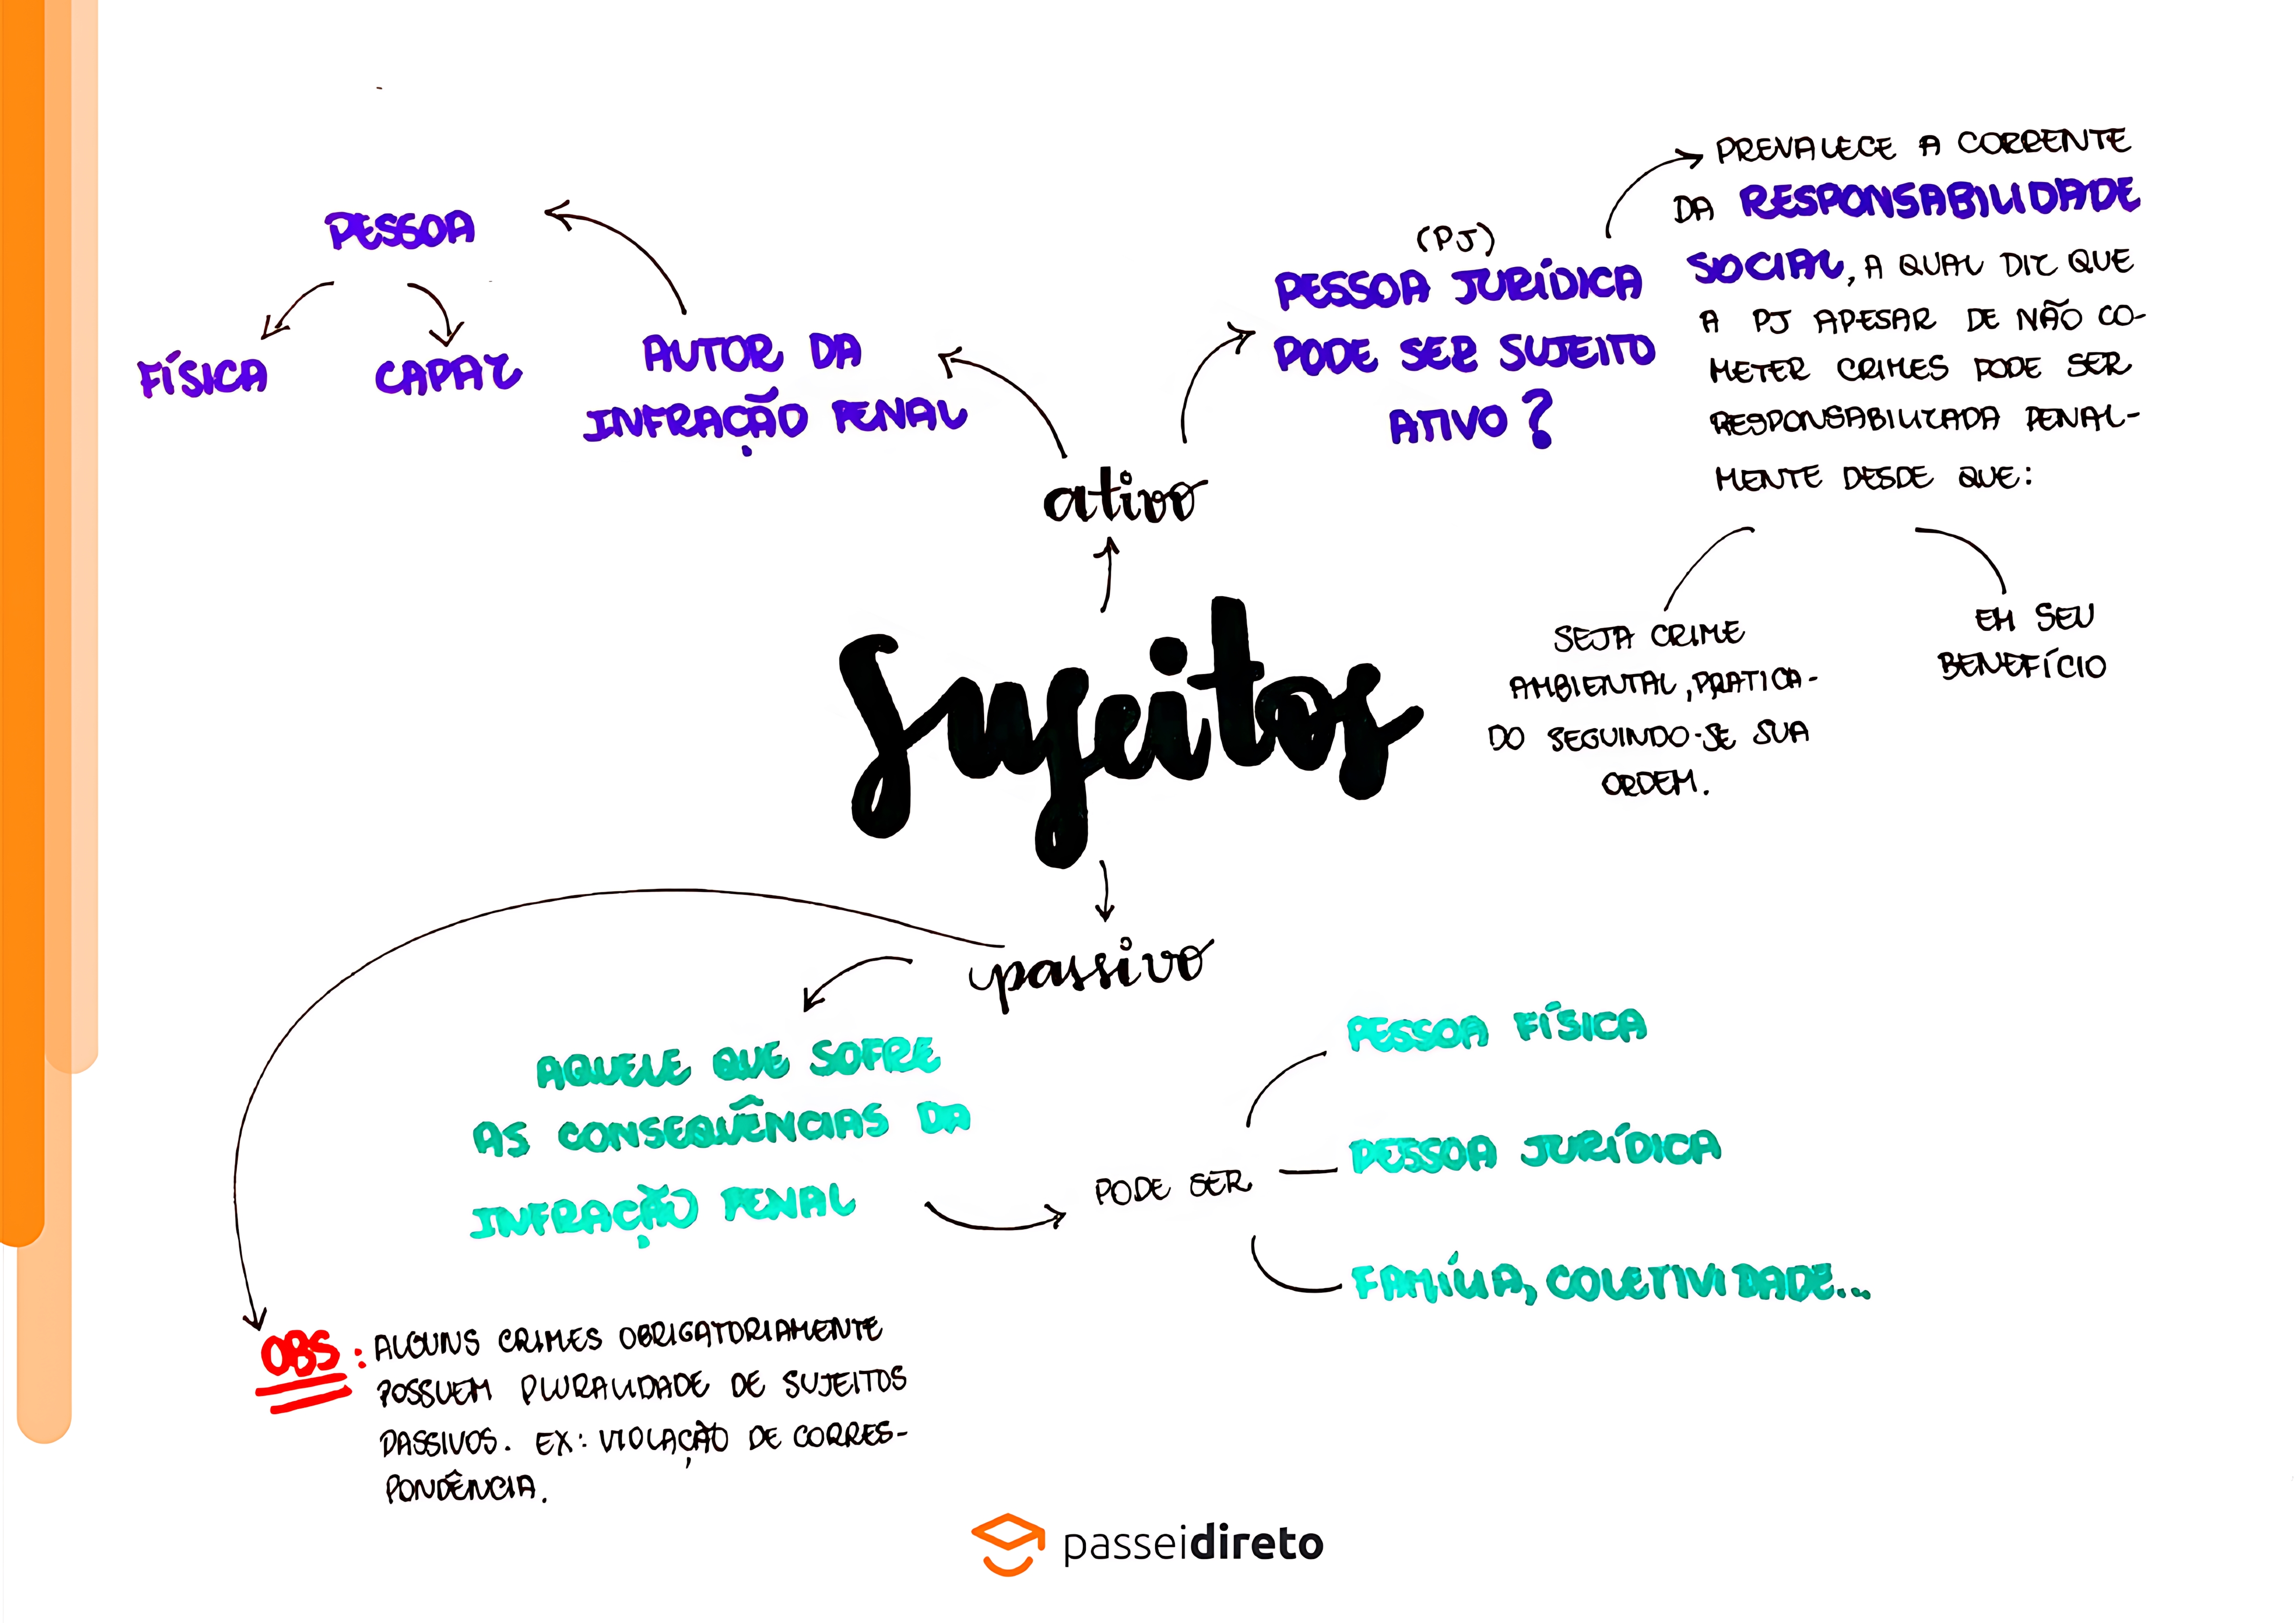 PESSOA
FÍSICA
CAPAZ
AUTOR DA
INFRAÇÃO PENAL
ativo
(PJ)
PESSOA JURÍDICA
PODE SER SUJEITO
ATIVO?
PREVALECE A CORRENTE
DA RESPONSABILIDADE
SOCIAL, A QUAL DIZ QUE
A PJ APESAR DE NÃO CO-
METER CRIMES PODE SER
RESPONSABILIZADA PENAL-
MENTE DESDE QUE:
SEJA CRIME
AMBIENTAL, PRATICA-
DO SEGUINDO-SE SUA
ORDEM.
EM SEU
BENEFÍCIO
Sujeitos
passivo
AQUELE QUE SOFRE
AS CONSEQUÊNCIAS DA
INFRAÇÃO PENAL
PODE SER
PESSOA FÍSICA
PESSOA JURÍDICA
FAMÍLIA, COLETIVIDADE...
OBS: ALGUNS CRIMES OBRIGATORIAMENTE
POSSUEM PLURALIDADE DE SUJEITOS
PASSIVOS. EX: VIOLAÇÃO DE CORRES-
PONDÊNCIA.
passeidireto